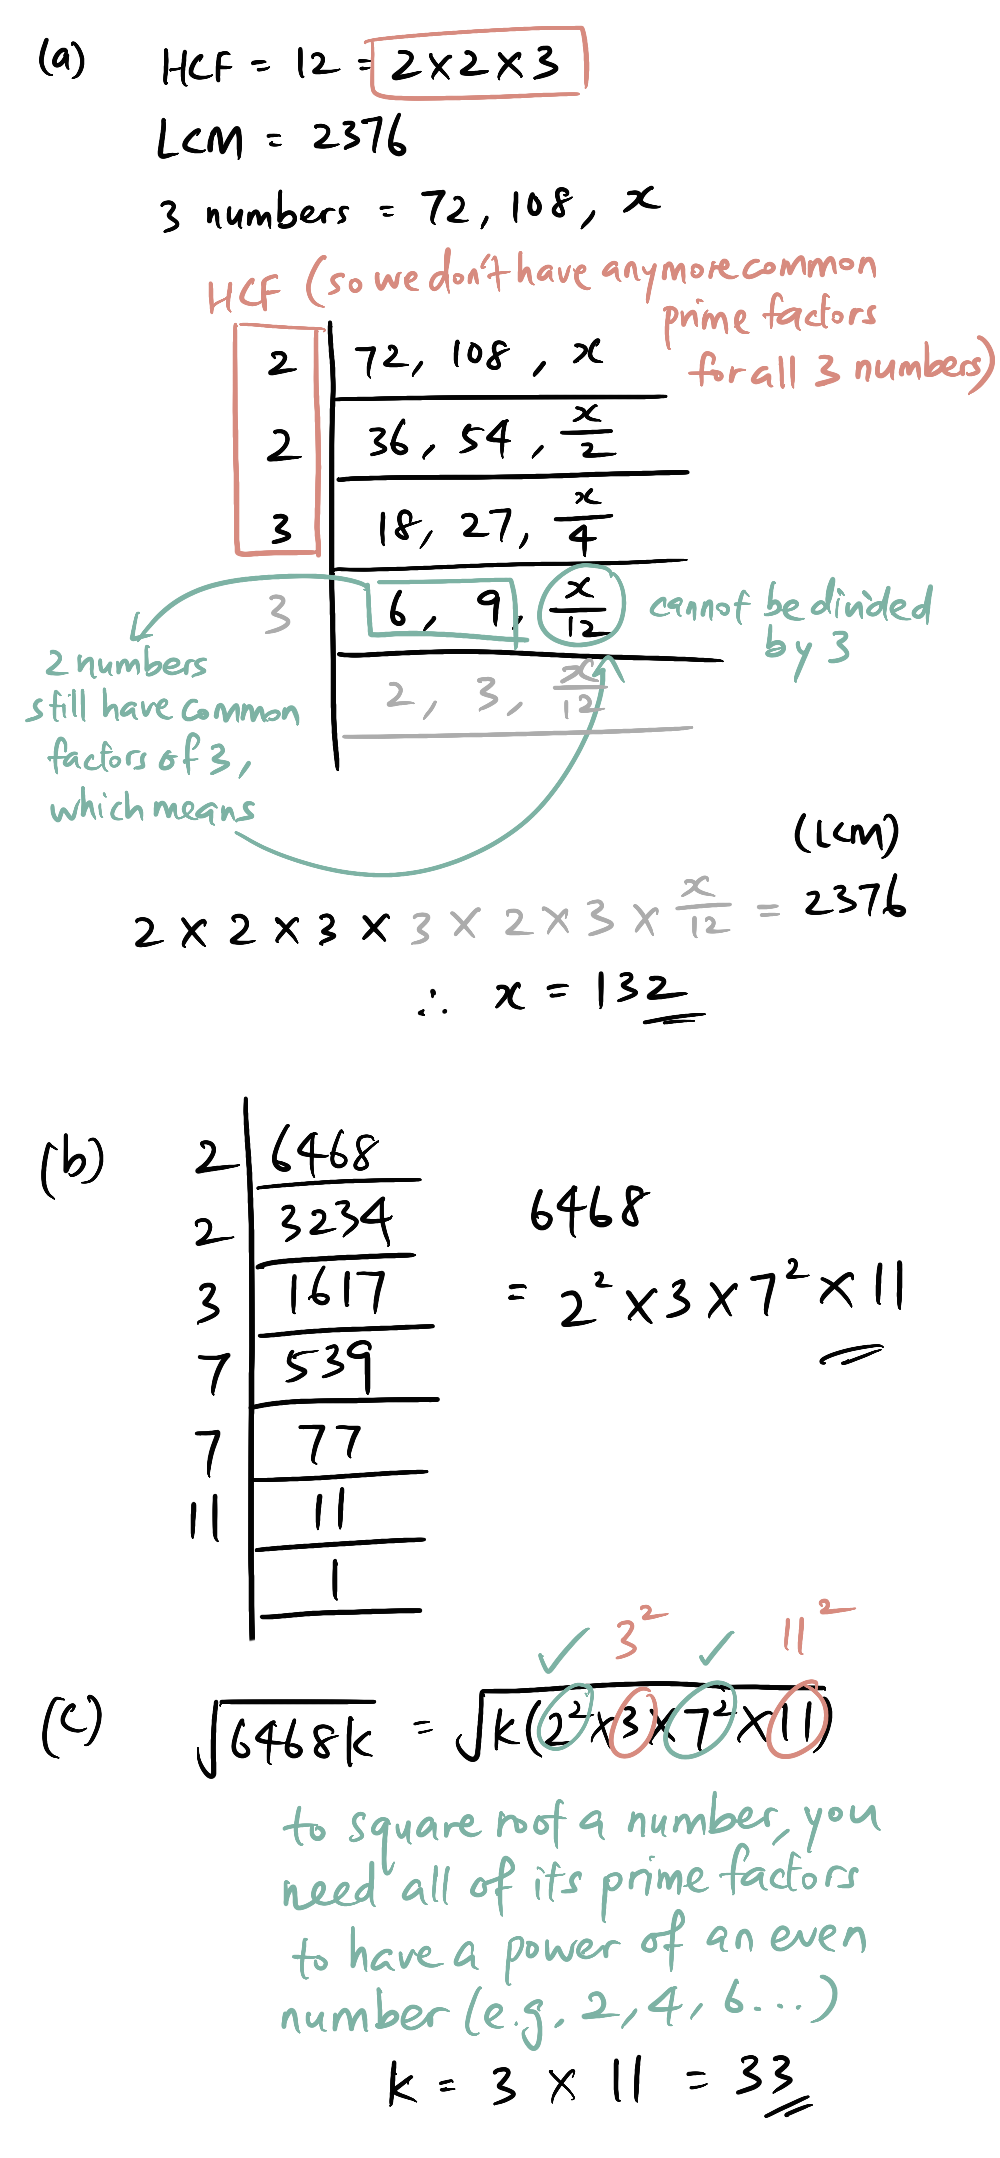 (a) HCF = 12 = 2×2×3
LCM = 2376
3 numbers = 72, 108, x
HCF (so we don't have anymore common
prime factors
for all 3 numbers)
2 72, 108, x
2 36, 54, x/2
3 18, 27, x/4
3 6, 9, x/12 cannot be divided
by 3
2, 3, x/12
2 numbers
still have common
factors of 3,
which means
(LCM)
2 × 2 × 3 × 3 × 2 × 3 × x/12 = 2376
∴ x = 132
(b) 2 6468
2 3234
3 1617
7 539
7 77
11 11
1
6468
= 2² × 3 × 7² × 11
✓ 3² ✓ 11²
(c) √6468k = √k(2²×3×7²×11)
to square root a number, you
need all of its prime factors
to have a power of an even
number (e.g. 2, 4, 6...)
k = 3 × 11 = 33